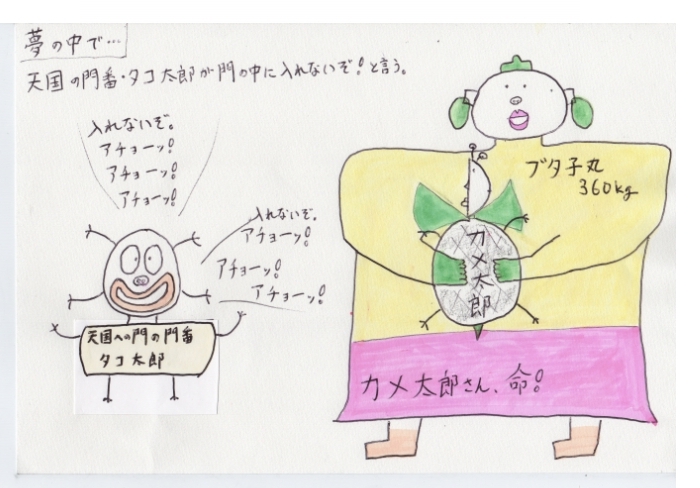 夢の中で…
天国の門番・タコ太郎が門の中に入れないぞ!と言う。
入れないぞ。
アチョーッ!
アチョーッ!
アチョーッ!
入れないぞ。
アチョーッ!
アチョーッ!
アチョーッ!
天国への門の門番
タコ太郎
ブタ子丸
360kg
カメ太郎
カメ太郎さん、命!